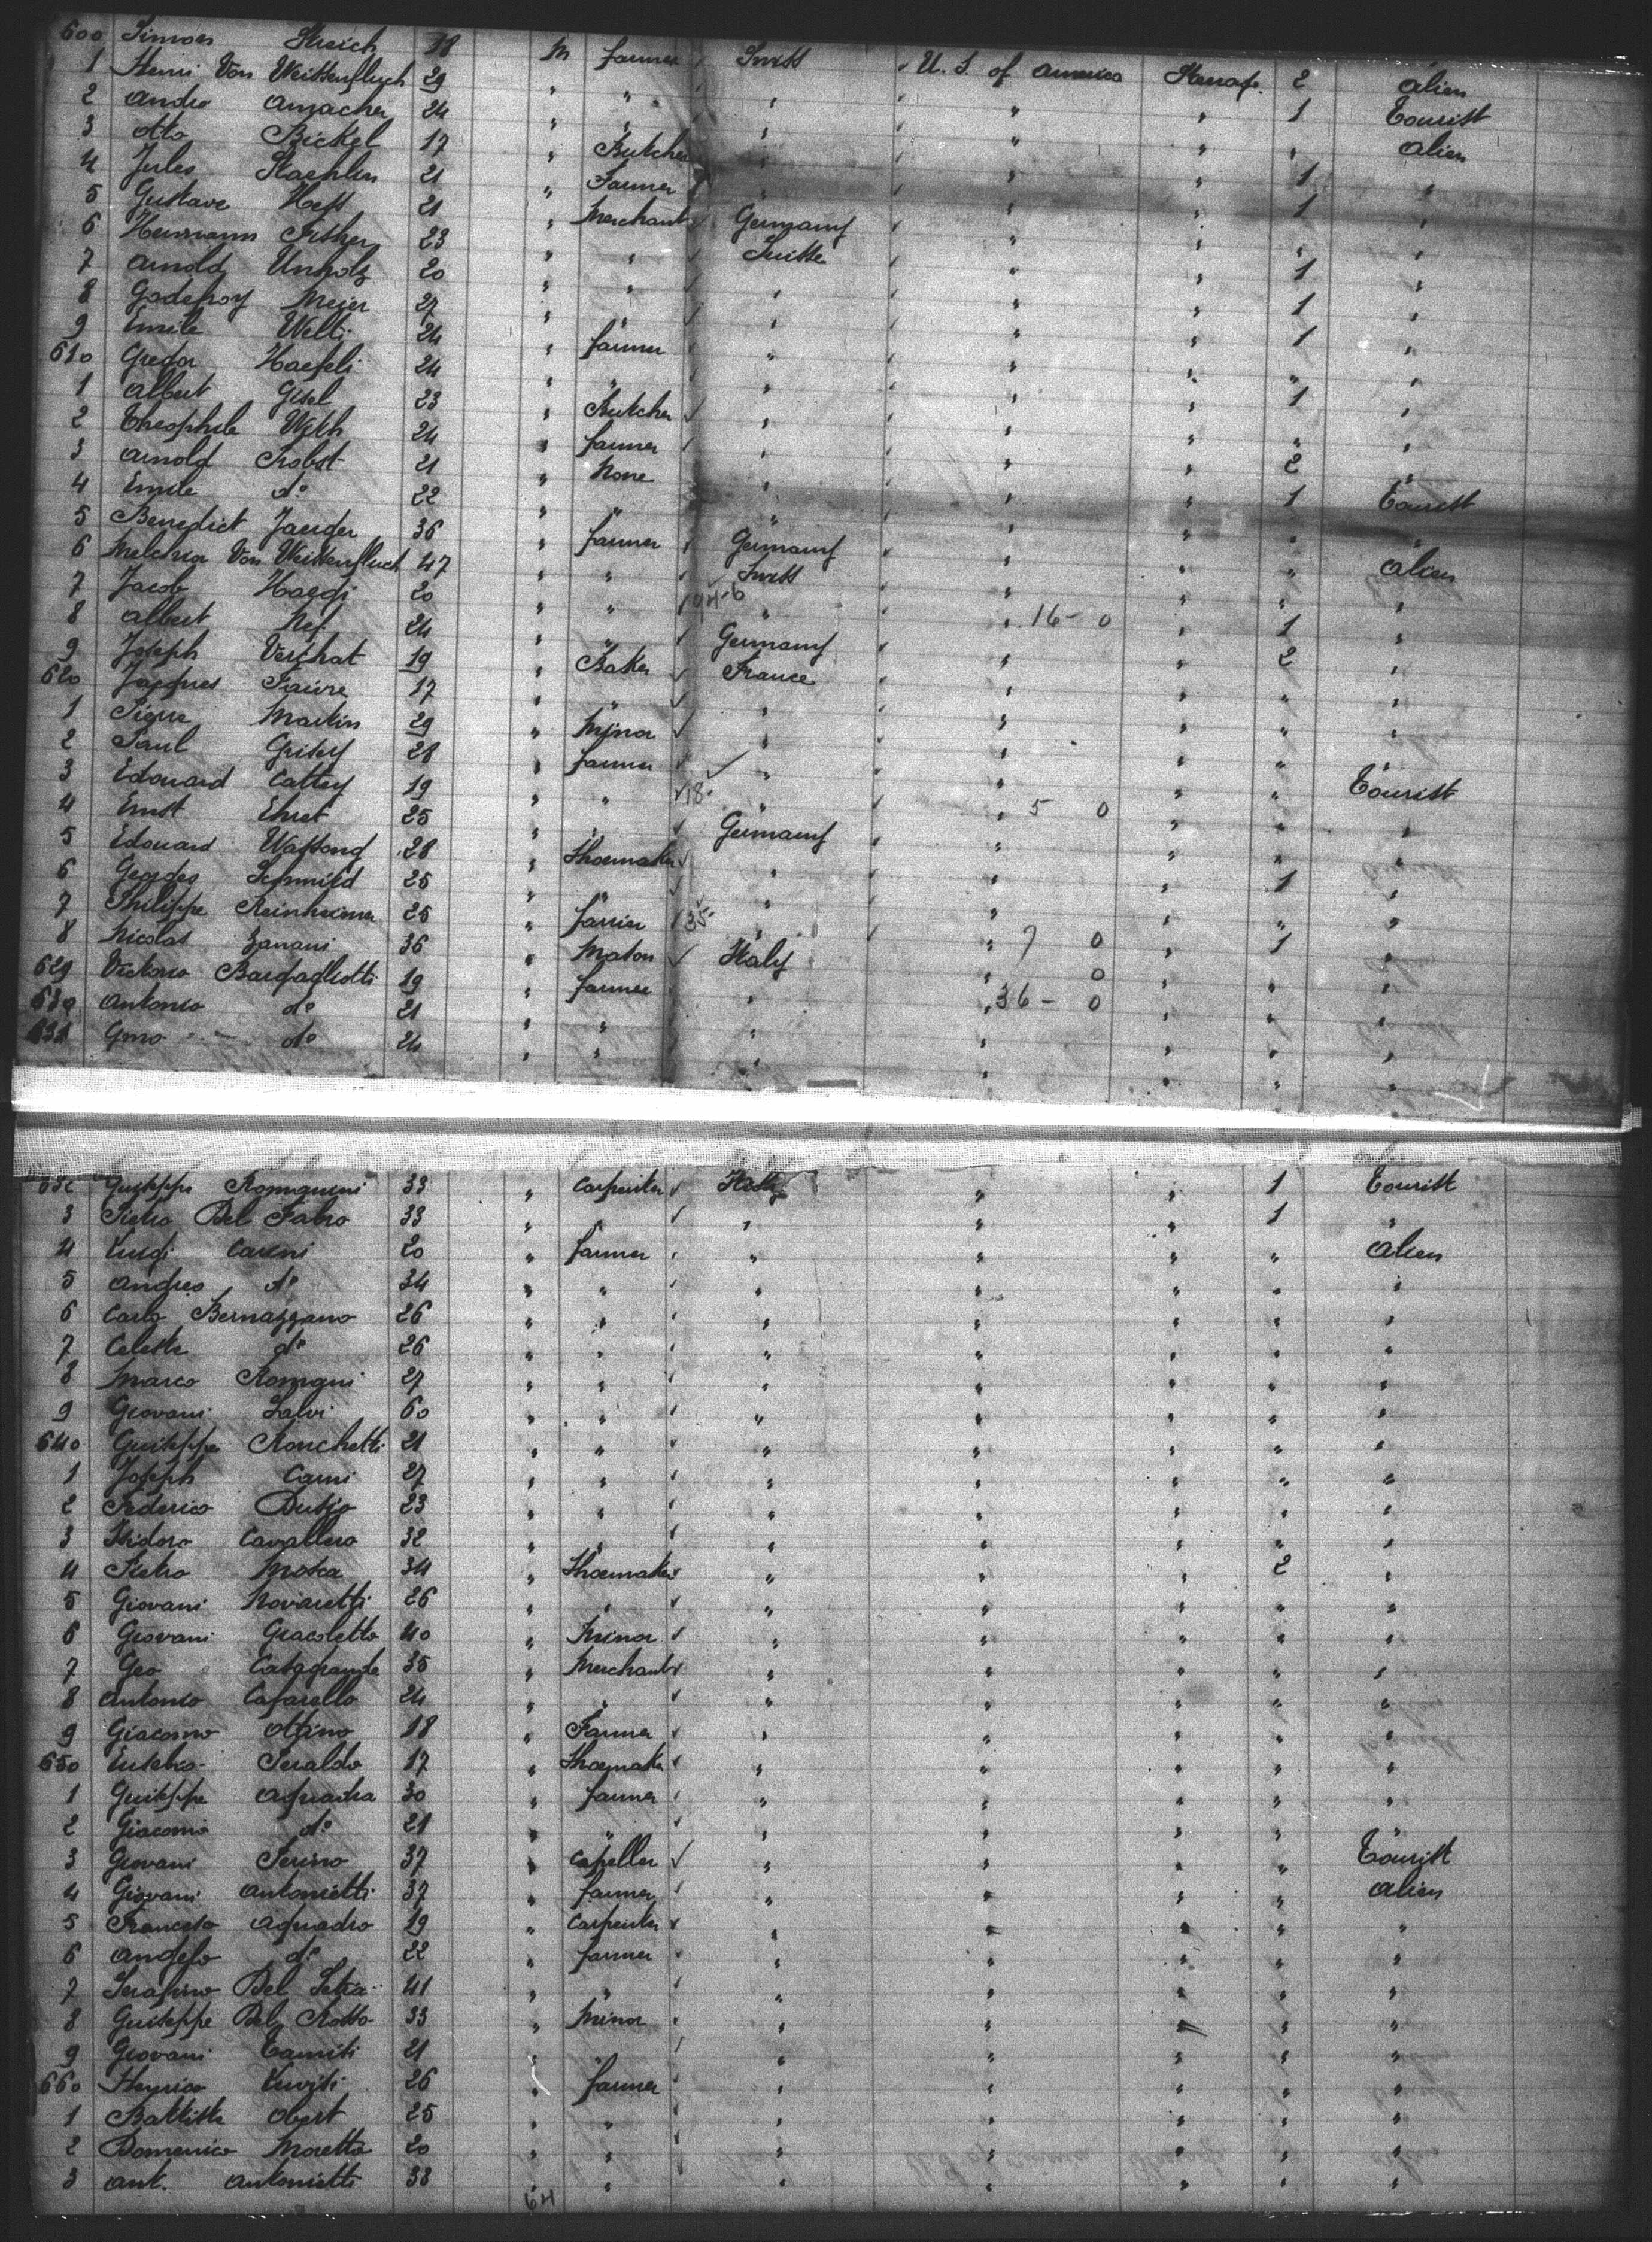 600 Simon Streich 18 M farmer Swiss U. S. of America Steerage 2 alien
1 Henri Von Weissenfluch 29 " " " " " 1 Tourist
2 Andro Amacher 24 " " " " " " alien
3 Otto Bickel 17 " Butcher " " " 1 "
4 Jules Staehlin 21 " Farmer " " " 1 "
5 Gustave Hess 21 " Merchant Germany " " " "
6 Hermann Fisher 23 " " Suisse " " 1 "
7 Arnold Unholz 20 " " " " " 1 "
8 Godefroy Meier 27 " " " " " 1 "
9 Emile Welti 24 " farmer " " " " "
610 Gregor Haefeli 24 " " " " " 1 "
1 Albert Gisel 23 " Butcher " " " " "
2 Theophile With 24 " farmer " " " 2 "
3 Arnold Probst 21 " None " " " 1 Tourist
4 Emile do 22 " " " " " " "
5 Benedict Jaeger 36 " farmer Germany " " " alien
6 Melchior Von Weissenfluch 47 " " Swiss " " " "
7 Jacob Haegi 20 " " " 16 - 0 " 1 "
8 Albert Nef 24 " " Germany " " 2 "
9 Joseph Verchat 19 " Baker France " " " "
620 Jacques Faivre 17 " " " " " " "
1 Pierre Martin 29 " Minor " " " " "
2 Paul Grisey 28 " farmer " " " " Tourist
3 Edouard Cattey 19 " " 18- " 5 0 " " "
4 Ernst Ehret 25 " " Germany " " " "
5 Edouard Wassong 28 " Shoemaker " " " 1 "
6 Georges Schmied 25 " " " " " " "
7 Philippe Reinheimer 25 " farrier 35- " 7 0 " 1 "
8 Nicolas Zanani 36 " Mason Italy 0 " " "
629 Victorio Bargagliotti 19 " farmer " 36 - 0 " " "
630 Antonio do 21 " " " " " " "
631 Gmo do 24 " " " " " " "
632 Guiseppe Romagnini 33 " Carpenter Italy " " 1 Tourist
3 Pietro Del Fabro 33 " " " " " 1 "
4 Luigi Carini 20 " farmer " " " " Alien
5 Andreo do 34 " " " " " " "
6 Carlo Bernazzano 26 " " " " " " "
7 Celeste do 26 " " " " " " "
8 Marco Romagni 27 " " " " " " "
9 Giovani Salvi 60 " " " " " " "
640 Guiseppe Ronchetti 21 " " " " " " "
1 Joseph Carni 27 " " " " " " "
2 Federico 23 " " " " " " "
3 Isidoro Cavallero 32 " " " " " " "
4 Pietro Mosca 34 " Shoemaker " " " 2 "
5 Giovani Novaretti 26 " " " " " " "
6 Giovani Giacoletto 40 " Minor " " " " "
7 Geo Casagrande 35 " Merchant " " " " "
8 Antonio Cafarello 24 " " " " " " "
9 Giacomo Ottino 18 " Farmer " " " " "
650 Eusebio Peraldo 17 " Shoemaker " " " " "
1 Guiseppe Aquadra 30 " farmer " " " " "
2 Giacomo do 21 " " " " " " "
3 Giovani Perino 37 " Capeller " " " " Tourist
4 Giovani Antonietti 37 " farmer " " " " alien
5 Francesco Aquadro 19 " Carpenter " " " " "
6 Angelo do 22 " farmer " " " " "
7 Serafino Del Setra 41 " " " " " " "
8 Guiseppe Del Rosso 33 " Minor " " " " "
9 Giovani 21 " " " " " " "
660 Henrico 26 " farmer " " " " "
1 Battista Obert 25 " " " " " " "
2 Domenico Moretto 20 " " " " " " "
3 Ant. Antonietti 38 " " " " " " "
64